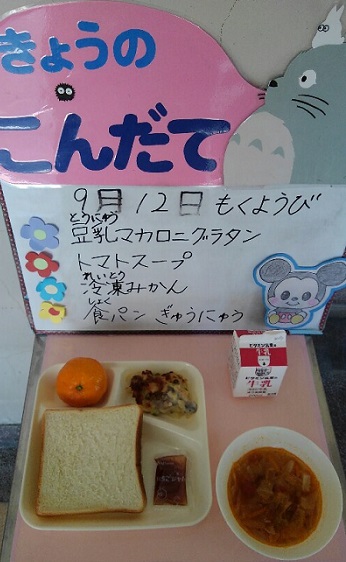 きょうの
こんだて
9月12日 もくようび
とうにゅう
豆乳マカロニグラタン
トマトスープ
れいとう
冷凍みかん
しょく
食パン ぎゅうにゅう
牛乳
牛乳